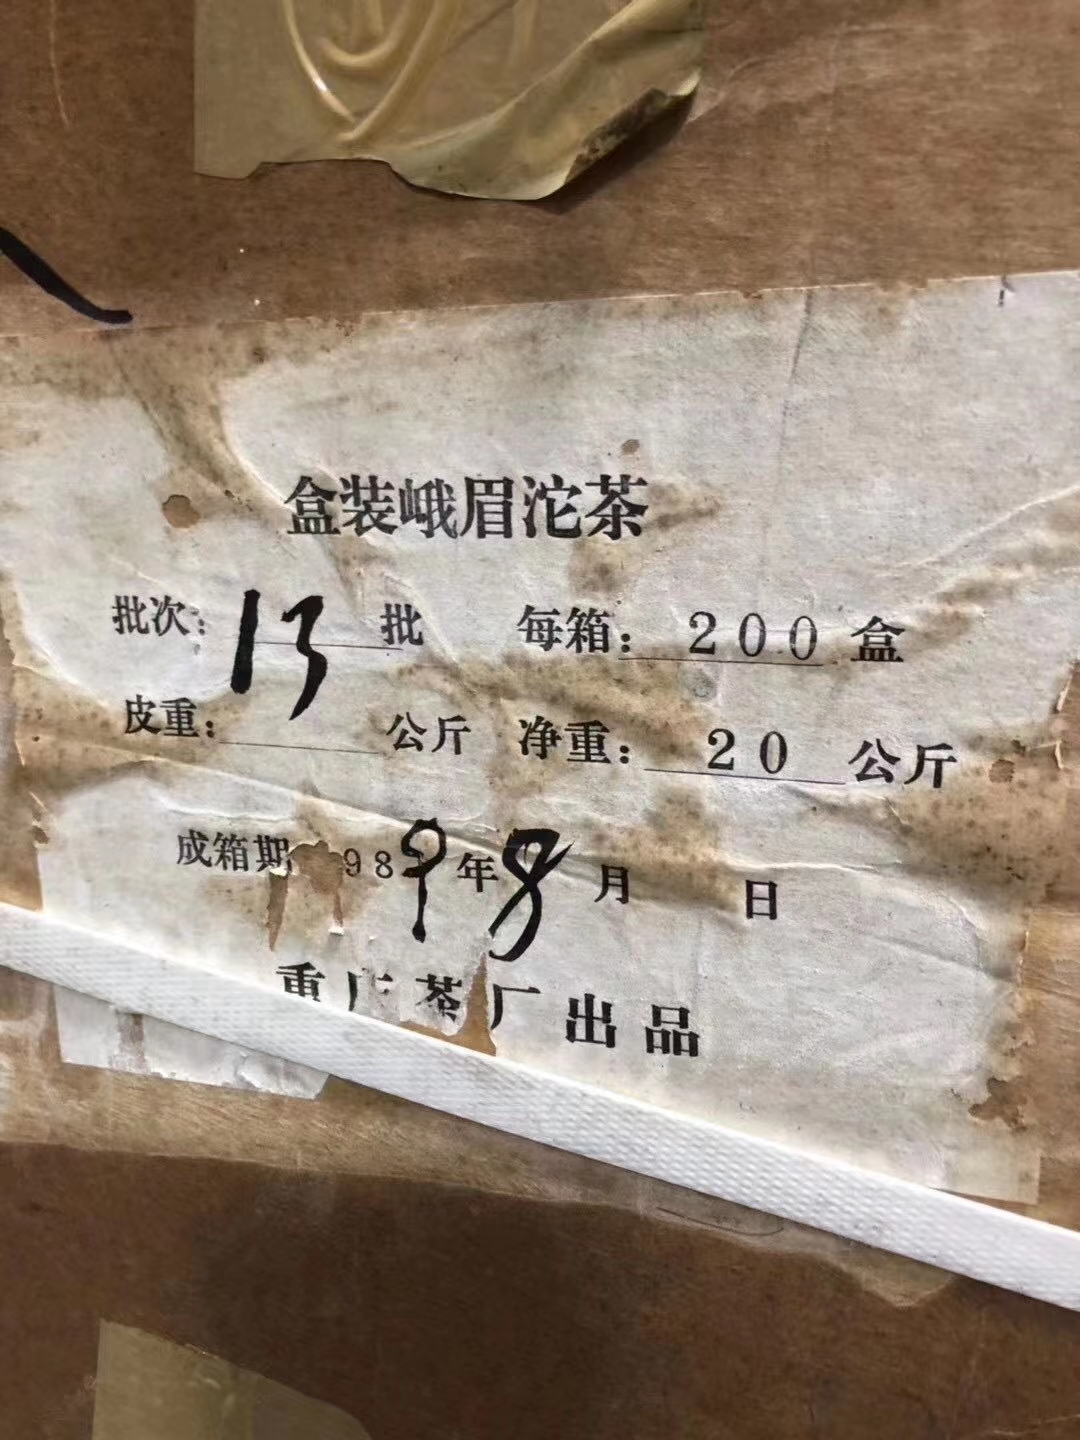 盒装峨眉沱茶
批次:13批 每箱:200盒
皮重: 公斤 净重:20公斤
成箱期 989年8月 日
重庆茶厂出品